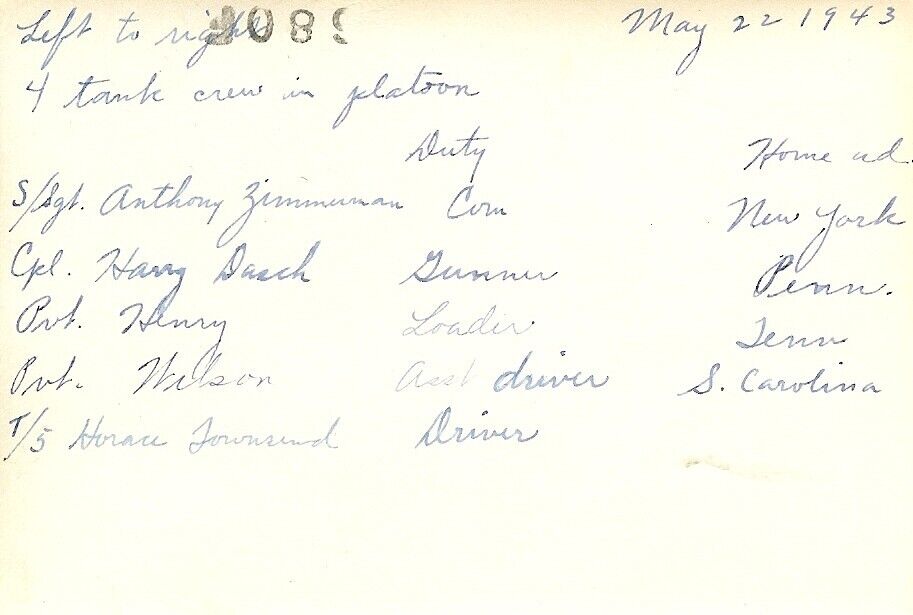 Left to right May 22 1943
4 tank crew in platoon
Duty Home ad.
S/Sgt. Anthony Zimmerman Com New York
Cpl. Harry Dasch Gunner Penn.
Pvt. Henry Loader Tenn
Pvt. Wilson Asst driver S. Carolina
T/5 Horace Townsend Driver